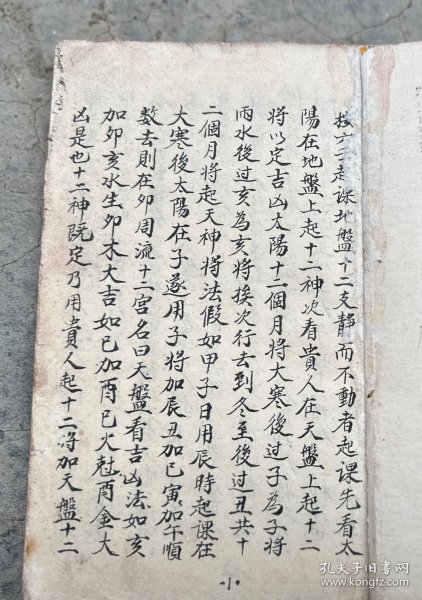 按六壬起課地盤十二支靜而不動者起課先看太
陽在地盤上起十二神次看貴人在天盤上起十二
將以定吉凶太陽十二個月將大寒後过子為子將
雨水後过亥為亥將挨次行去到冬至後过丑共十
二個月將起天神將法假如甲子日用辰時起課在
大寒後太陽在子遂用子將加辰丑加巳寅加午順
数去則在卯周流十二宮名曰天盤看吉凶法如亥
加卯亥水生卯木大吉如巳加酉巳火尅酉金大
凶是也十二神既定乃用貴人起十二將加天盤十二
·1·
孔夫子旧书网
www.kongfz.com